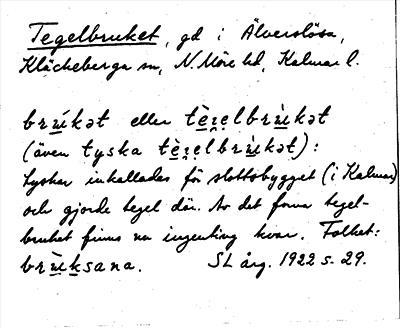 Tegelbruket, gd i Älverslösa,
Kläckeberga sn, N. Möre hd, Kalmar l.
brʉ́kət eller tè̱ge̱lbrʉ̀kət
(även tyska tè̱ge̱lbrʉ̀kət):
tyskar inkallades för slottsbygget (i Kalmar)
och gjorde tegel där. Av det forna tegel-
bruket finns nu ingenting kvar. Folket:
brʉ̀ksana. SL årg. 1922 s. 29.